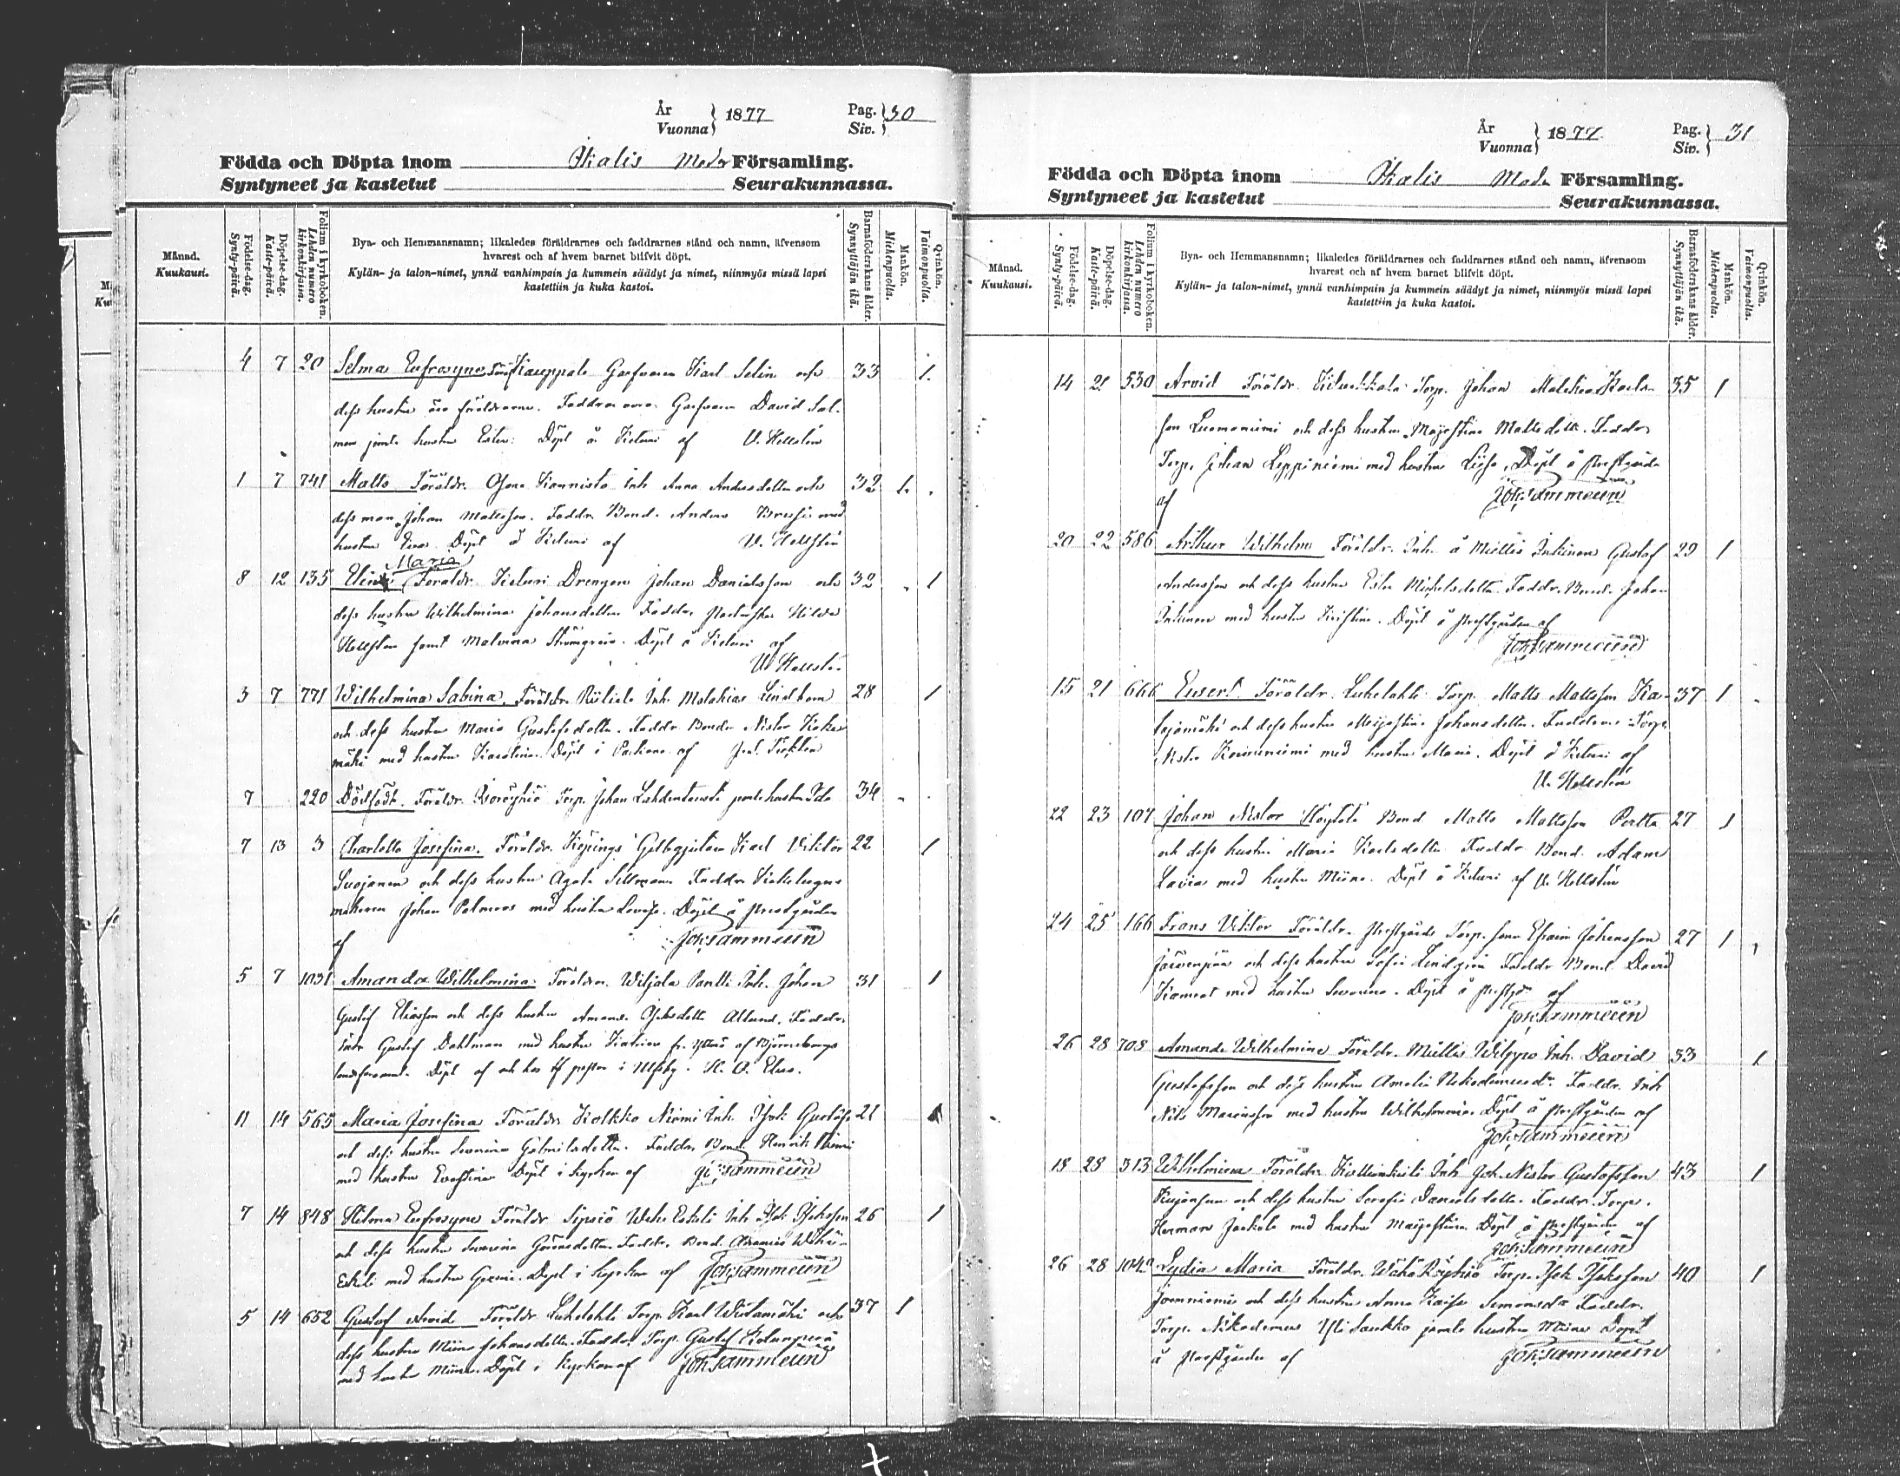 År
Vuonna } 1877
Pag.
Siv. } 30
Födda och Döpta inom Ikalis Moder Församling.
Syntyneet ja kastetut Seurakunnassa.
Månad.
Kuukausi.
Födelse-dag.
Synty-päivä.
Döpelse-dag.
Kaste-päivä.
Folium i kyrkoboken.
Lehden numero kirkonkirjassa.
Bya- och Hemmansnamn; likaledes föräldrarnes och faddrarnes stånd och namn, äfvensom
hvarest och af hvem barnet blifvit döpt.
Kylän- ja talon-nimet, ynnä vanhimpain ja kummein säädyt ja nimet, niinmyös missä lapsi
kastettiin ja kuka kastoi.
Barnaföderskans ålder.
Synnyttäjän ikä.
Mankön.
Miehenpuolta.
Qvinkön.
Vaimonpuolta.
4 7 20 Selma Eufrosyne Kauppala Garfvaren Karl Selin och 33 1.
dess hustru äro föräldrarne. Faddrar voro Garfvaren David Sal-
men jemte hustru Ester. Döpt å Keturi af U. Hellstén
1 7 741 Matts Föräldr. Kannisto Inh. Anna Andersdotter och 32 1.
dess man Johan Mattsson. Faddr. Bond. Anders med
hustru Eva. Döpt å Keturi af U. Hellstén
Maria
8 12 135 Elin Föräldr. Keturi Drengen Johan Danielsson och 32 1
dess hustru Wilhelmina Johansdotter Faddr. Hilda
Hellstén samt Malvina Döpt å Keturi af
U. Hellstén
3 7 771 Wilhelmina Sabina. Föräldr. Riiliala Inh. Malakias Lindholm 28 1
och dess hustru Maria Gustafsdotter. Faddr. Bonden Nestor
mäki med hustru Karolina. Döpt i Parkano af
7 220 Dödfödt. Föräldr. Torp. Johan Lahdentausta jemte hustru Ida 34
7 13 3 Charlotta Josefina. Föräldr. Köpings Karl Viktor 22 1
Suojanen och dess hustru Agata Faddr.
makaren Johan Palmroos med hustru Lovisa. Döpt å Prestgården
af Joh. Sammeliin
5 7 1031 Amanda Wilhelmina Föräldr. Wiljala Pantti Inh. Johan 31 1
Gustaf Eliasson och dess hustru Amanda Isaksdotter Allund. Faddr.
Gustaf Dahlman med hustru fr. af Björneborgs
landsförsaml. Döpt af och hos pastor i Ulfsby. K. O. Elus.
11 14 565 Maria Josefina Föräldr. Kolkko Niemi Inh. Isak Gustafss. 21 1
och dess hustru Severina Gabrielsdotter. Faddr. Bond. Henrik Niemi
med hustru Evastina Döpt i Kyrkan af Joh. Sammeliin
7 14 848 Hilma Eufrosyne Föräldr. Sipsiö Wähä Eskeli Inh. Isak Isaksson 26 1
och dess hustru Severina Göransdotter. Faddr. Bond. Wähä-
Eskeli med hustru Döpt i kyrkan af Joh. Sammeliin
5 14 652 Gustaf Arvid Föräldr. Luhalahti Torp. Karl och 37 1
dess hustru Miina Johansdotter. Faddr. Torp. Gustaf
med hustru Miina. Döpt i kyrkan af Joh. Sammeliin
År
Vuonna } 1877
Pag.
Siv. } 31
Födda och Döpta inom Ikalis Moder Församling.
Syntyneet ja kastetut Seurakunnassa.
Månad.
Kuukausi.
Födelse-dag.
Synty-päivä.
Döpelse-dag.
Kaste-päivä.
Folium i kyrkoboken.
Lehden numero kirkonkirjassa.
Bya- och Hemmansnamn; likaledes föräldrarnes och faddrarnes stånd och namn, äfvensom
hvarest och af hvem barnet blifvit döpt.
Kylän- ja talon-nimet, ynnä vanhimpain ja kummein säädyt ja nimet, niinmyös missä lapsi
kastettiin ja kuka kastoi.
Barnaföderskans ålder.
Synnyttäjän ikä.
Mankön.
Miehenpuolta.
Qvinkön.
Vaimonpuolta.
14 21 530 Arvid Föräldr. Torp. Johan Malakias Karls- 35 1
son Luomaniemi och dess hustru Majastina Mattsdotter. Faddr.
Torp. Johan Leppiniemi med hustru Lisa. Döpt å Prestgården
af Joh. Sammeliin
20 22 586 Arthur Wilhelm Föräldr. Inh. å Miettis Inkinen Gustaf 29 1
Andersson och dess hustru Ester Michelsdotter. Faddr. Bond. Johan
Inkinen med hustru Kristina. Döpt å Prestgården af
Joh. Sammeliin
15 21 666 Föräldr. Luhalahti Torp. Matts Mattsson 37 1
och dess hustru Majastina Johansdotter. Faddrar Torp.
Nestor med hustru Maria. Döpt å Keturi af
U. Hellstén
22 23 107 Johan Nestor Höytölä Bond Matts Mattsson Pertta 27 1
och dess hustru Maria Karlsdotter Faddr. Bond. Adam
med hustru Miina. Döpt å Keturi af U. Hellstén
24 25 166 Frans Viktor Föräldr. Prestgårds Torp. son Efraim Johansson 27 1
Järvenpää och dess hustru Sofia Lindqvist Faddr. Bond. David
med hustru Severina. Döpt å Prestg. af
Joh. Sammeliin
26 28 708 Amanda Wilhelmina Föräldr. Miettis Wilppo Inh. David 33 1
Gustafsson och dess hustru Amalia Nikodemusd:r. Faddr. Inh.
Nils med hustru Wilhelmina. Döpt å Prestgården af
Joh. Sammeliin
18 28 313 Wilhelmina Föräldr. Inh. Joh. Nestor Gustafsson 43 1
och dess hustru Serafia Danielsdotter. Faddr. Torp.
Herman Jaakola med hustru Majastina. Döpt å Prestgården af
Joh. Sammeliin
26 28 104 Lydia Maria Föräldr. Wähä Röyhiö Torp. Isak Isaksson 40 1
Joenniemi och dess hustru Anna Kaisa Simonsd:r Faddr.
Torp. Nikodemus Yli Saukko jemte hustru Miina Döpt
å Prestgården af Joh. Sammeliin